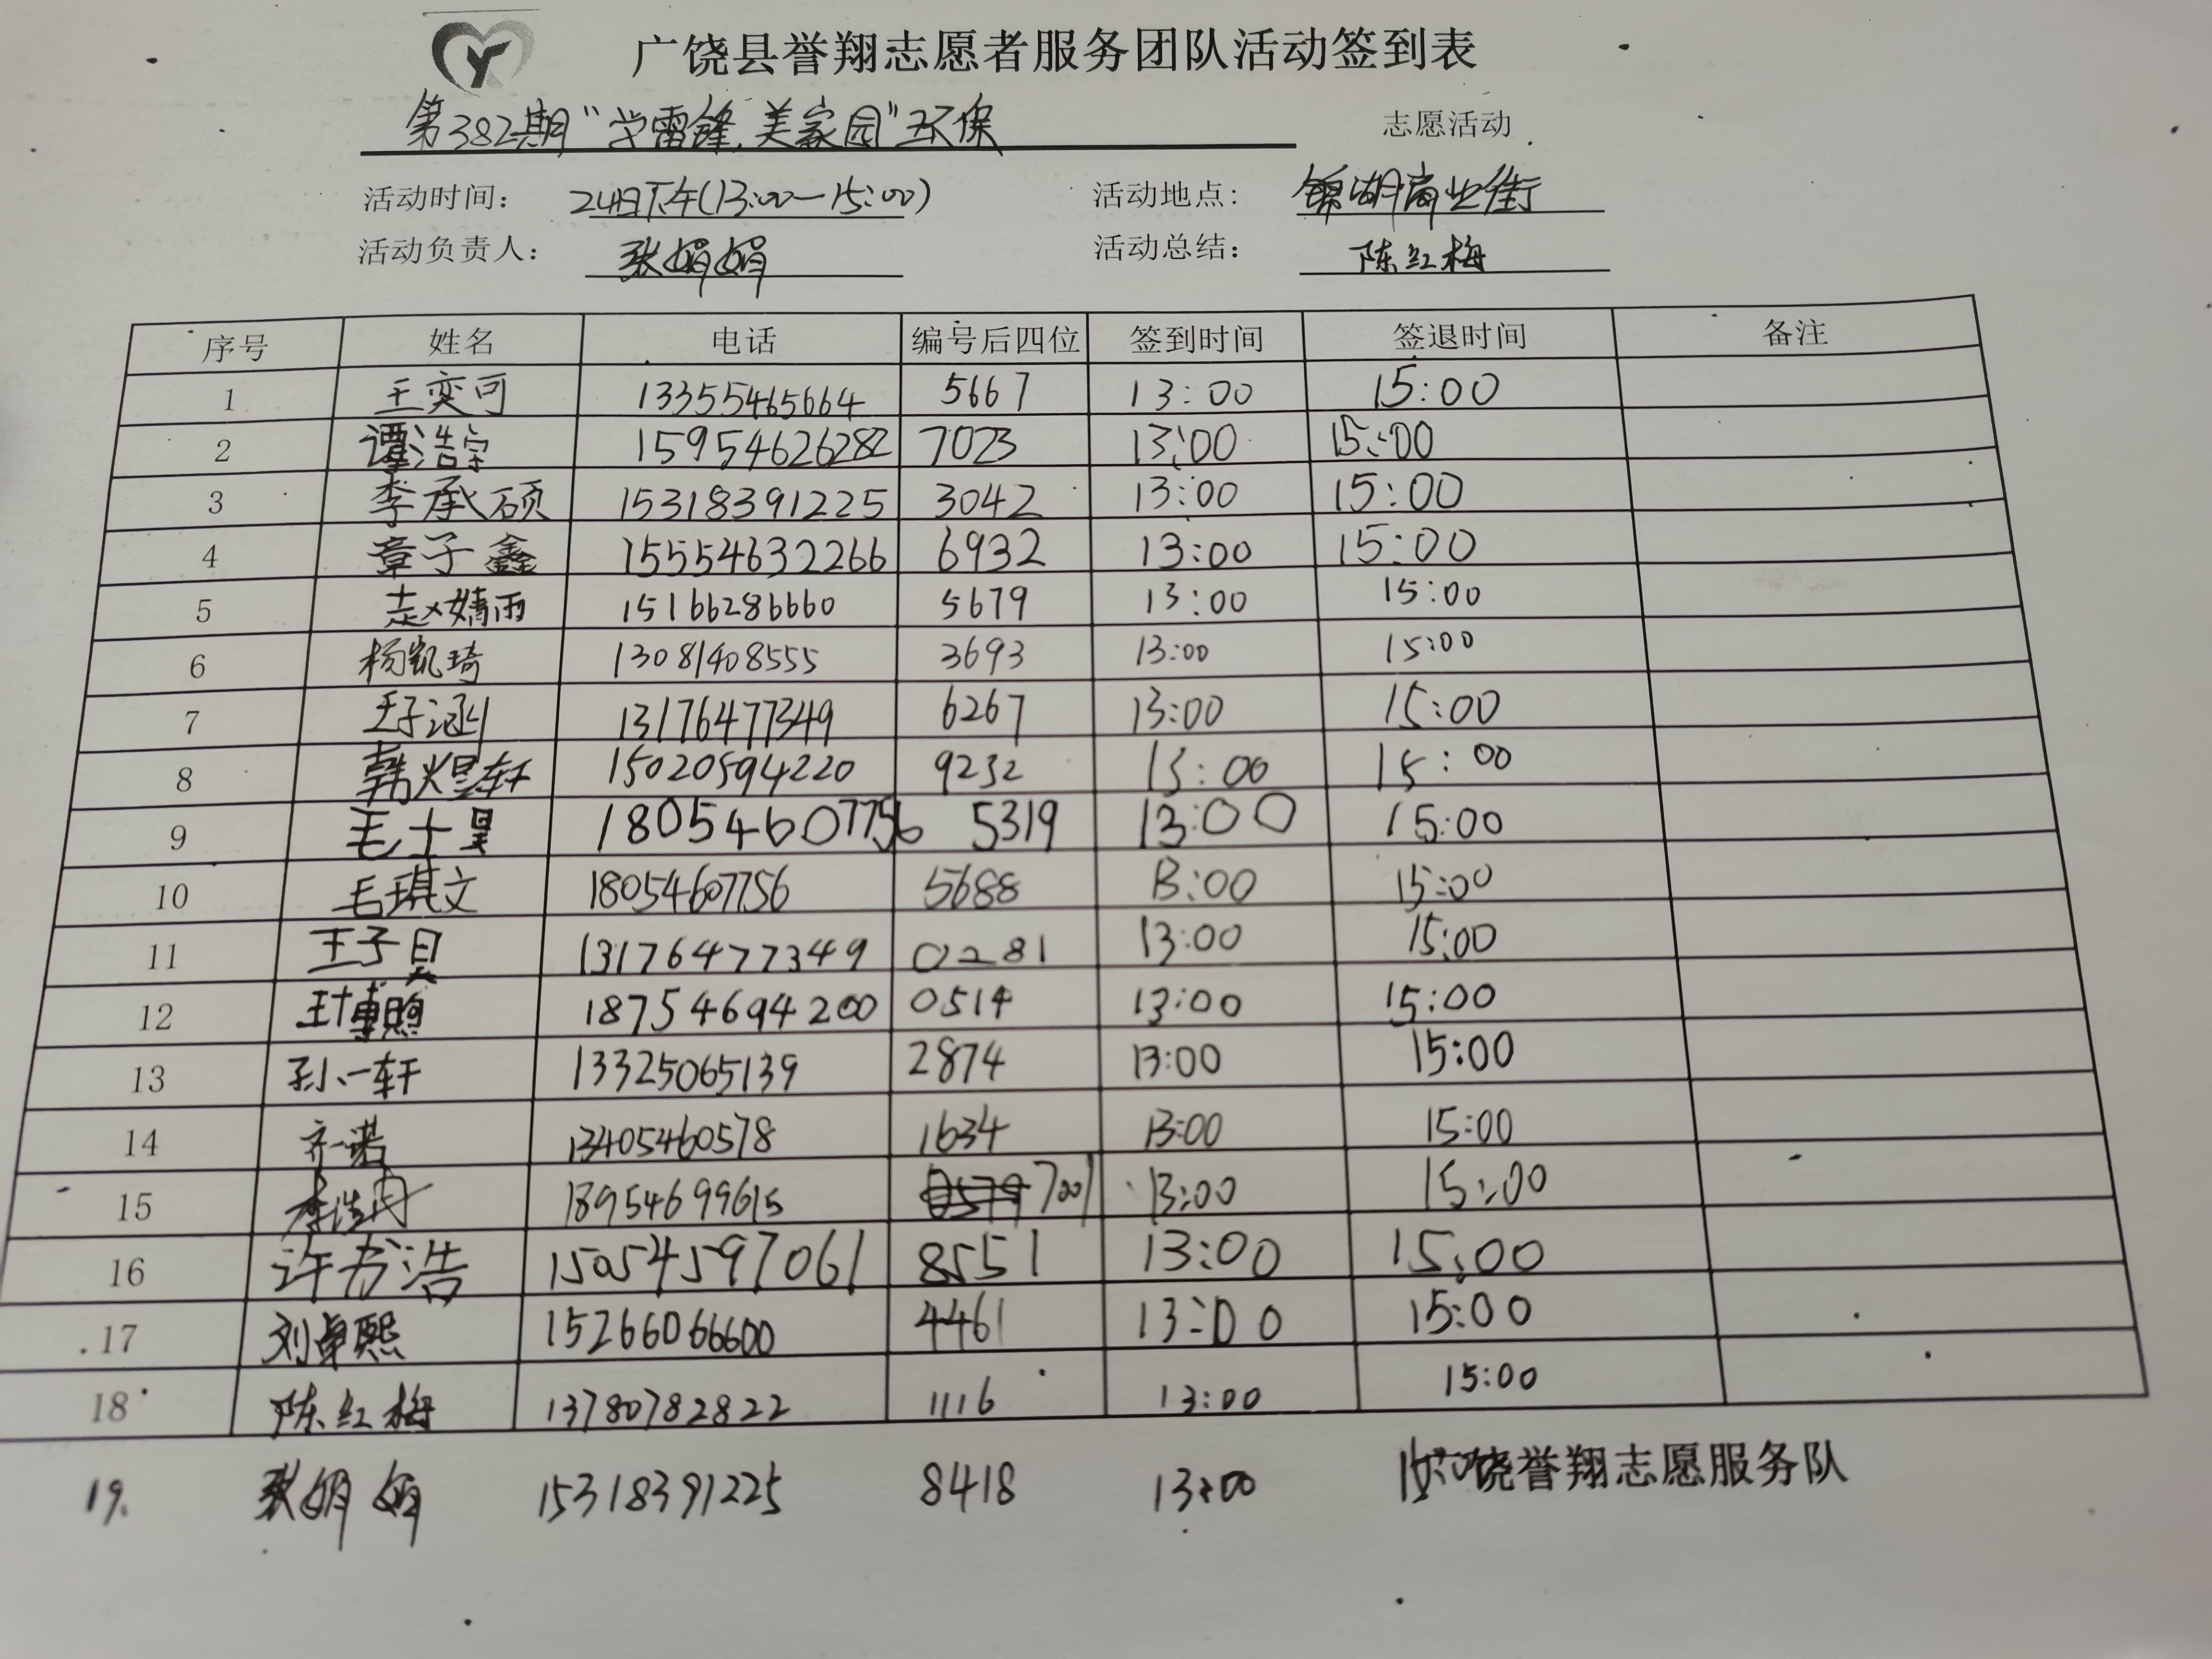 广饶县誉翔志愿者服务团队活动签到表
第382期“学雷锋.美家园”环保 志愿活动
活动时间： 24日下午(13:00—15:00) 活动地点： 锦湖商业街
活动负责人： 张娟娟 活动总结： 陈红梅
序号 姓名 电话 编号后四位 签到时间 签退时间 备注
1 王奕可 13355465664 5667 13:00 15:00
2 谭浩宇 15954626282 7023 13:00 15:00
3 李承硕 15318391225 3042 13:00 15:00
4 章子鑫 15554632266 6932 13:00 15:00
5 赵婧雨 15166286660 5679 13:00 15:00
6 杨凯琦 13081408555 3693 13:00 15:00
7 王子涵 13176477349 6267 13:00 15:00
8 韩煜轩 15020594220 9232 13:00 15:00
9 毛士昊 18054607756 5319 13:00 15:00
10 毛琪文 18054607756 5688 13:00 15:00
11 王子昊 13176477349 0281 13:00 15:00
12 王博照 18754694200 0514 13:00 15:00
13 孙一轩 13325065139 2874 13:00 15:00
14 齐一诺 13405460578 1634 13:00 15:00
15 李浩 18954699615 7001 13:00 15:00
16 许书浩 15054597061 8551 13:00 15:00
17 刘卓熙 15266066600 4461 13:00 15:00
18 陈红梅 13780782822 1116 13:00 15:00
19. 张娟娟 15318391225 8418 13:00 15:00
饶誉翔志愿服务队